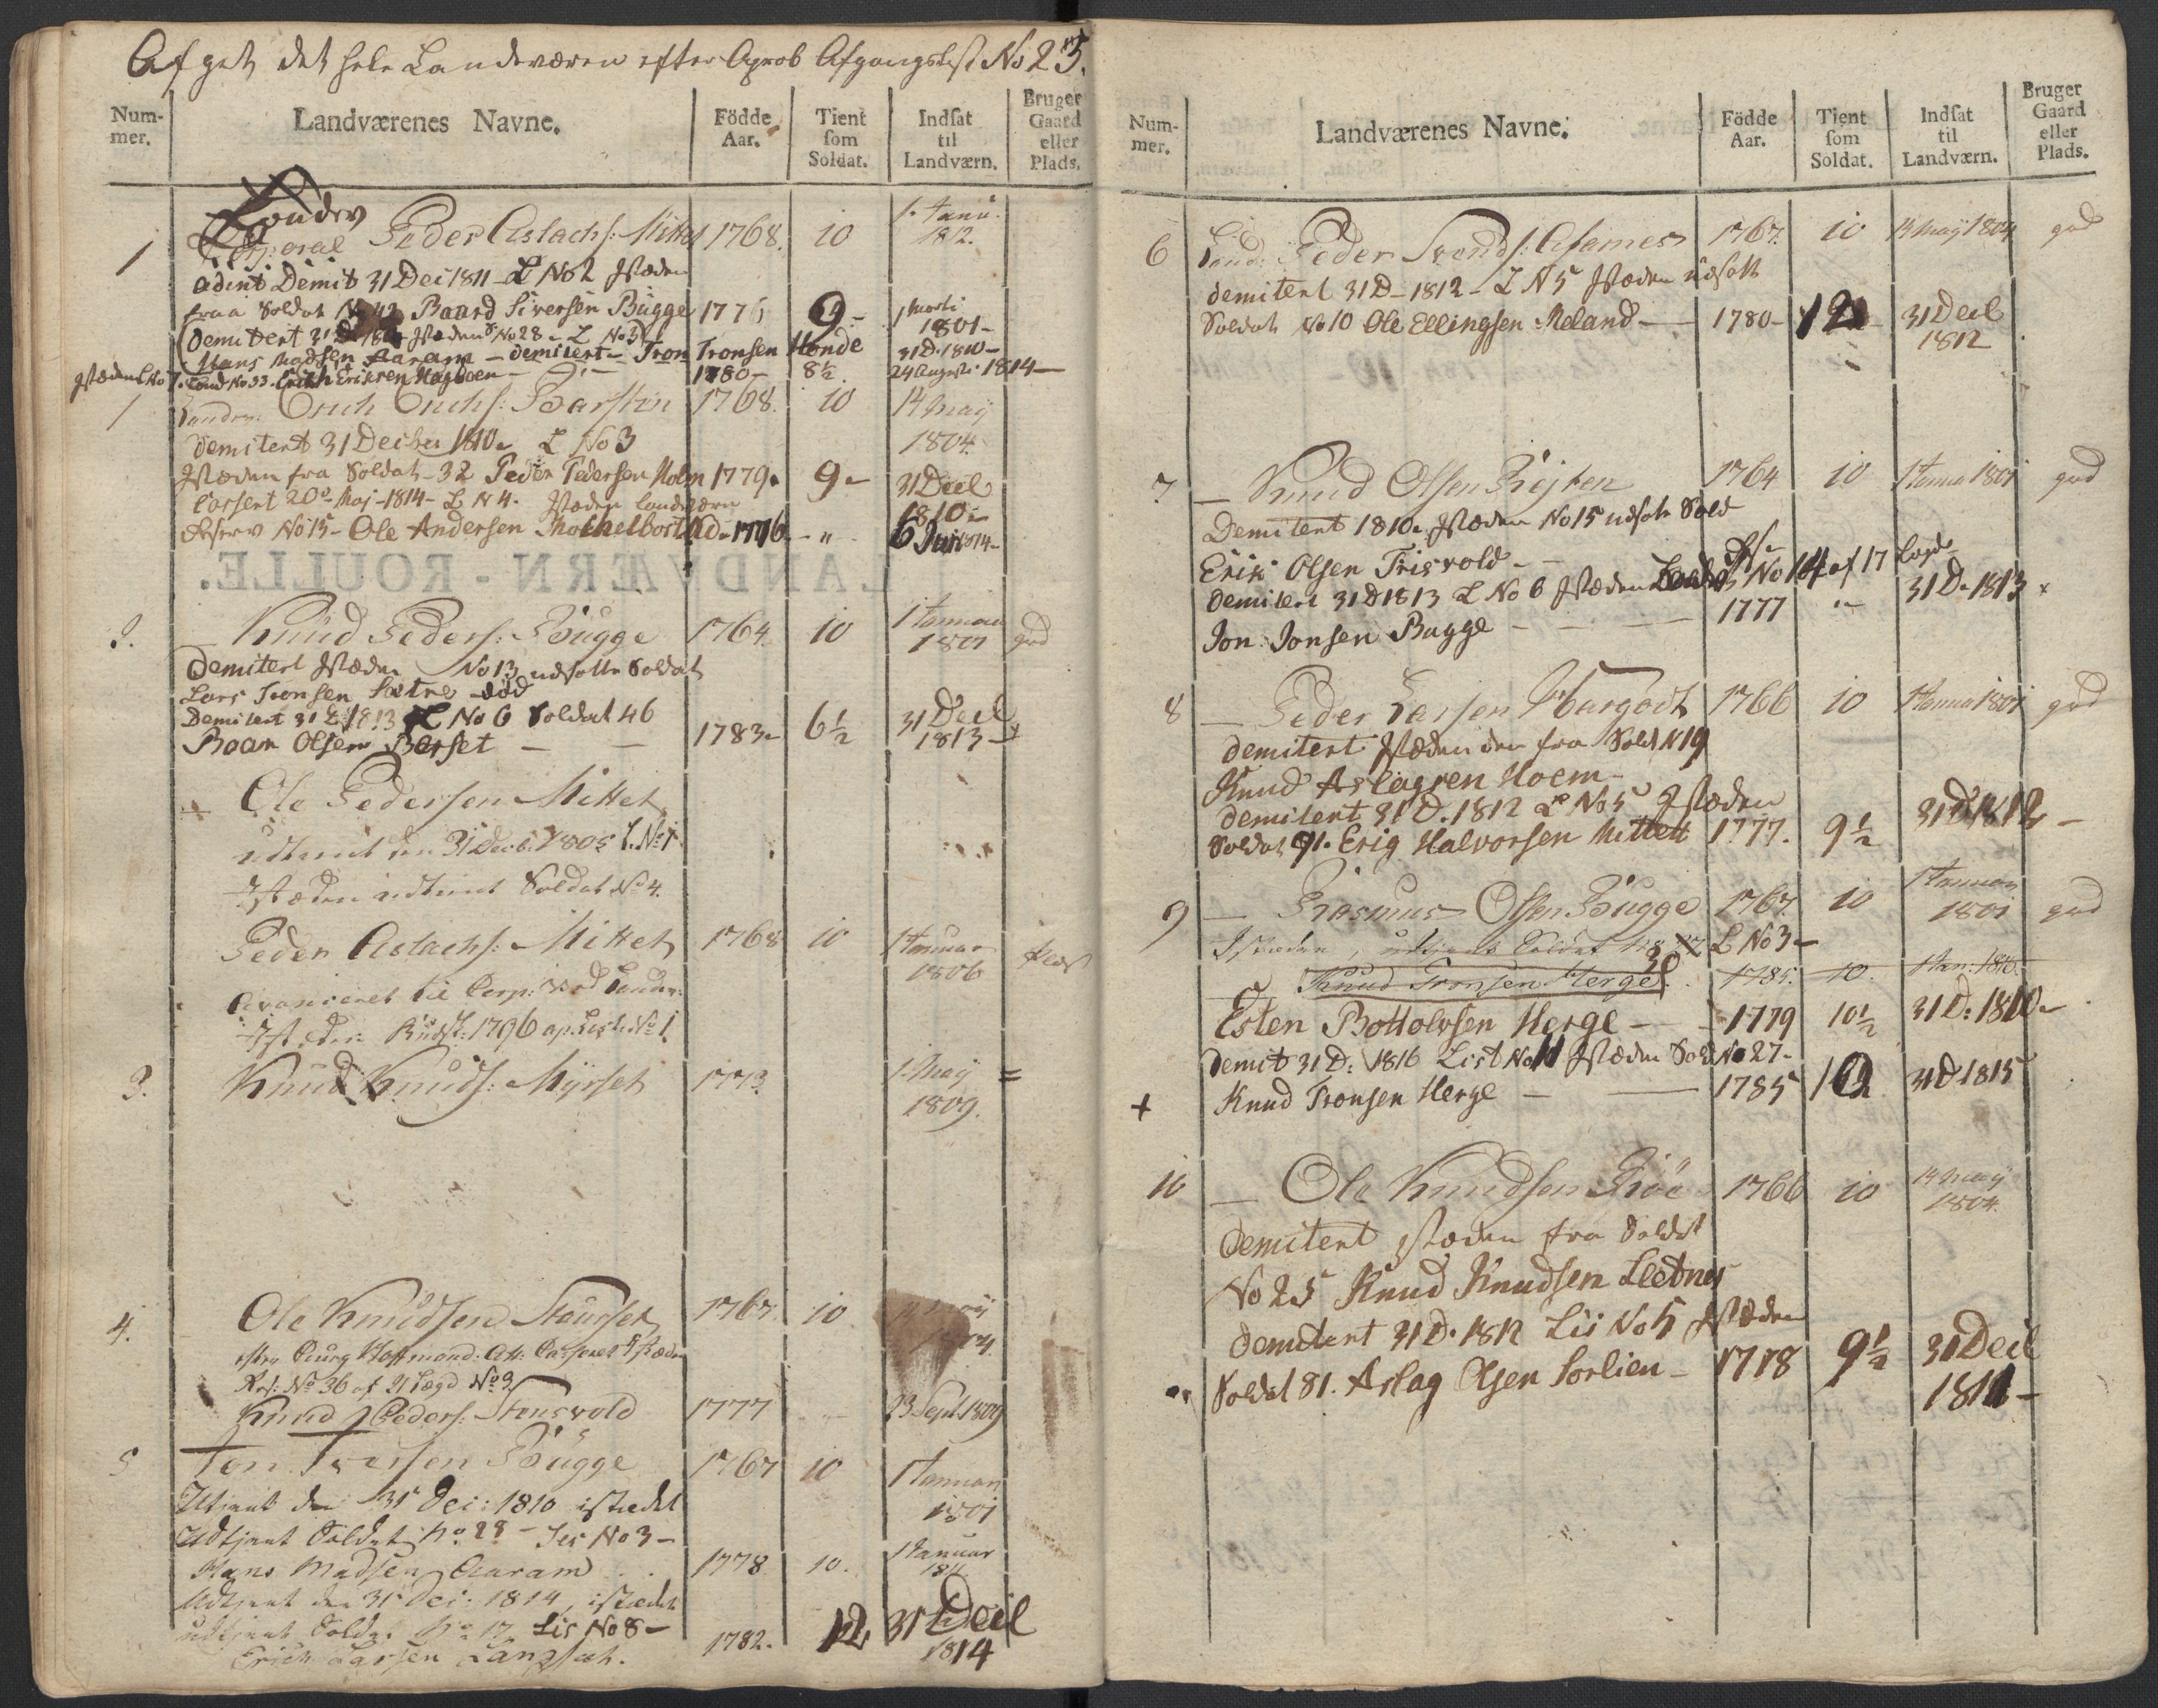 Afgik det hele Landeværen efter Aprob Afgangslist No 25.
Num-mer. Landværenes Navne. Födde Aar. Tient som Soldat. Indsat til Landværn. Bruger Gaard eller Plads.
1 Landev Corporal Peder Aslachs: Mittet 1768. 10 1. Janu. 1812.
Demit 31 Dec 1811 L No 2 Istæden
fraa Soldat No 42 Baard Siversen Bügge 1776 9 - 1 Marti 1801 -
Demitert 31 D Istæden No 28 - L No 3
Hans Madsen Aaram - demitert - Tron Tronsen Honde 31 D. 1810 -
Istæden L No 7. Land No 33. Erich Ericksen Hagboen - 1780 - 8½ 24 August 1814 -
1 Landev. Erich Erichs: Barsten 1768. 10 14 Maÿ 1804.
Demitert 31 Decber 1810. L No 3
Istæden fra Soldat - 32 Peder Pedersen Holm 1779. 9 - 31 Decb 1810 -
Casert 20de Maj - 1814 - L N 4. Istæden Landværn
Reserv No 15 - Ole Andersen Mochelbostad - 1776 - " 6 Juni 1814 -
LANDVÆRN - ROULLE.
2. — Knud Peders: Bügge 1764. 10 1 Januar 1801 god
Demitert Istæden No 13 udsatte Soldat
Lars Tronsen Sætre - død
Demitert 31 D 1813 L No 6 Soldat 46
Roar Olsen Berset — — 1783 - 6½ 31 Decb 1813 -
— Ole Pedersen Mittet
udtient den 31 Decb: 1805 L. No 1
Istæden udtient Soldat No 4.
Peder Aslachs: Mittet 1768 10 1 Januar 1806
Avanceret til Corp: ved Landv:
Istæden Rüdst: 1796 ap. Liste No 1.
3. Knud Knuds: Mÿrset 1773 1. Maÿ 1809. =
4. Ole Knudsen Staurset 1767. 10.
Casseret Istæden
Res: No 36 af 21 Lægd No 2
Knud Peders: Stensvold 1777 23 Sept 1809
5 Jon Iversen Bügge 1767 10 1 Januar 1801
Utjent den 31 Dec: 1810 istædet
Udtjent Soldat No 28 - Lis No 3 -
Hans Madsen Aaram 1778 10. 1 Januar 1811.
Udtjent den 31 Dec: 1814, istædet
udtjent Soldat No 17 Lis No 8 -
Erich Larsen Langsæt. 1782. 12 31 Decb 1814
Num-mer. Landværenes Navne. Födde Aar. Tient som Soldat. Indsat til Landværn. Bruger Gaard eller Plads.
6 Land: Peder Svends: Agsames 1767. 10 14 Maÿ 1804 god
demitert 31 D - 1812 - L N 5 Istæden udsatt
Soldat No 10 Ole Ellingsen Meland — 1780 - 12 - 31 Decb 1812
7 — Knud Olsen 1764 10 1 Janua 1801 god
Demitert 1810. Istæden No 15 udsatte Sold
Erik Olsen Trisvold -
demitert 31 D 1813 L No 6 Istæden No 14 af 17 Lægd 31 D. 1813
Jon Jonsen Bugge — — 1777 " -
8 — Peder Larsen Wargødt 1766 10 1 Janua 1801 god
demitert Istæden den fra Sold N 19
Knud Aslagsen Hoem -
demitert 31 D. 1812 L No 5 Istæden
Soldat 91. Erig Halvorsen Mittett 1777. 9½ 31 D 1812 -
9 — Rasmus Olsen Bügge 1767. 10 1 Januar 1801 god
Istæden, udtjent Soldat L No 3 -
Knud Tronsen Herge 1785. 10. 1 Jan: 1810.
Esten Bottolvsen Herge — - 1779 10½ 31 D: 1810 -
Demit 31 D: 1816 List No 11 Istæden Sold No 27 -
+ Knud Tronsen Herge — — 1785 12 31 D 1815
10 — Ole Knudsen Röe 1766 10 14 Maÿ 1804.
Demitert istæden fra Soldat
No 25 Knud Knudsen Sletnes
Demitert 31 D. 1812 Lis No 5 Istæden
Soldat 81. Aslag Olsen Sorlien - 1778 9½ 31 Decb 1811 -